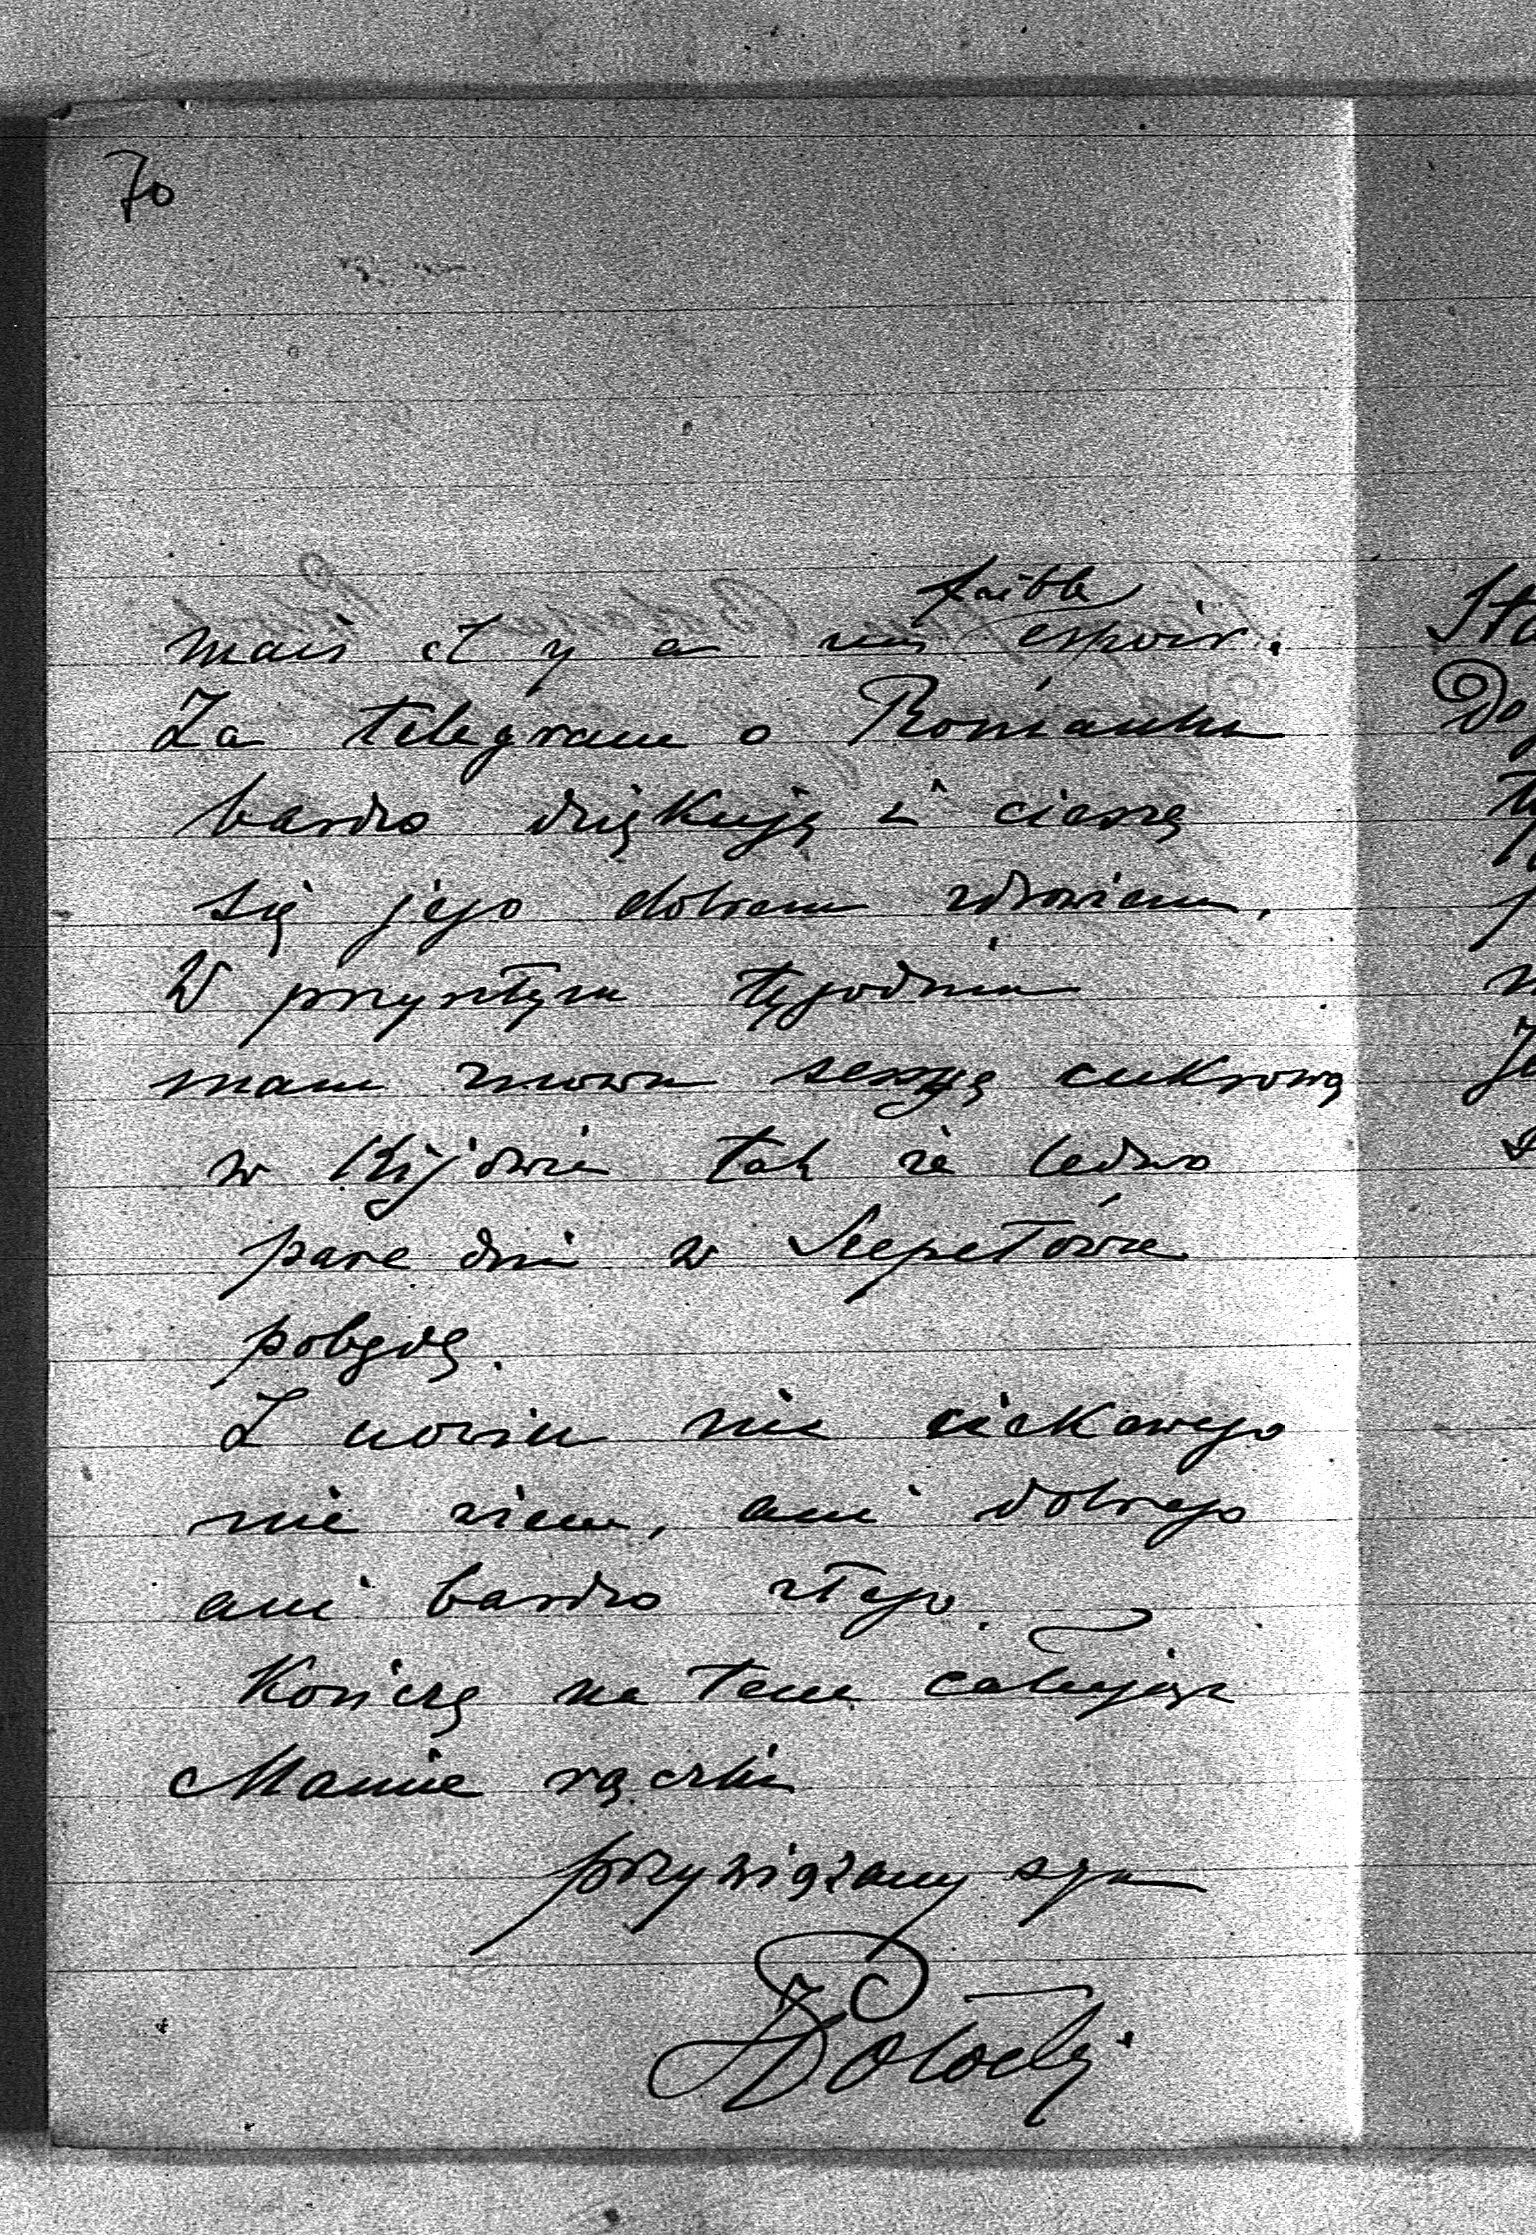 70
faible
mais il y a un espoir.
Za telegram o Romanku
bardzo dziękuję i cieszę
się jego dobrem zdrowiem.
W przyszłym tygodniu
mam znowu sesyę cukrową
w Kijowie tak że ledwo
parę dni w Szepetówce
pobędę.
Z nowin nic ciekawego
nie wiem, ani dobrego
ani bardzo złego.
Kończę na tem całując
Mamie rączki
przywiązany syn
JPotocki